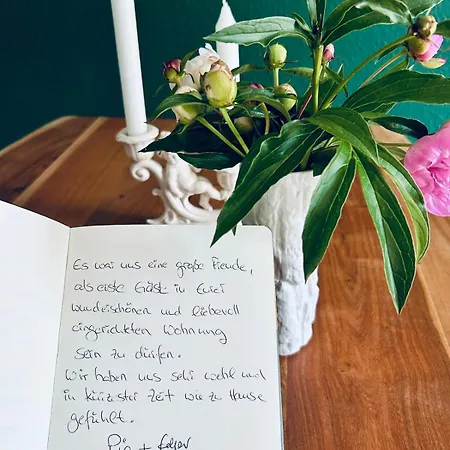 Es war uns eine große Freude,
als erste Gäste in Eurer
wunderschönen und liebevoll
eingerichteten Wohnung
sein zu dürfen.
Wir haben uns sehr wohl und
in kürzester Zeit wie zu Hause
gefühlt.